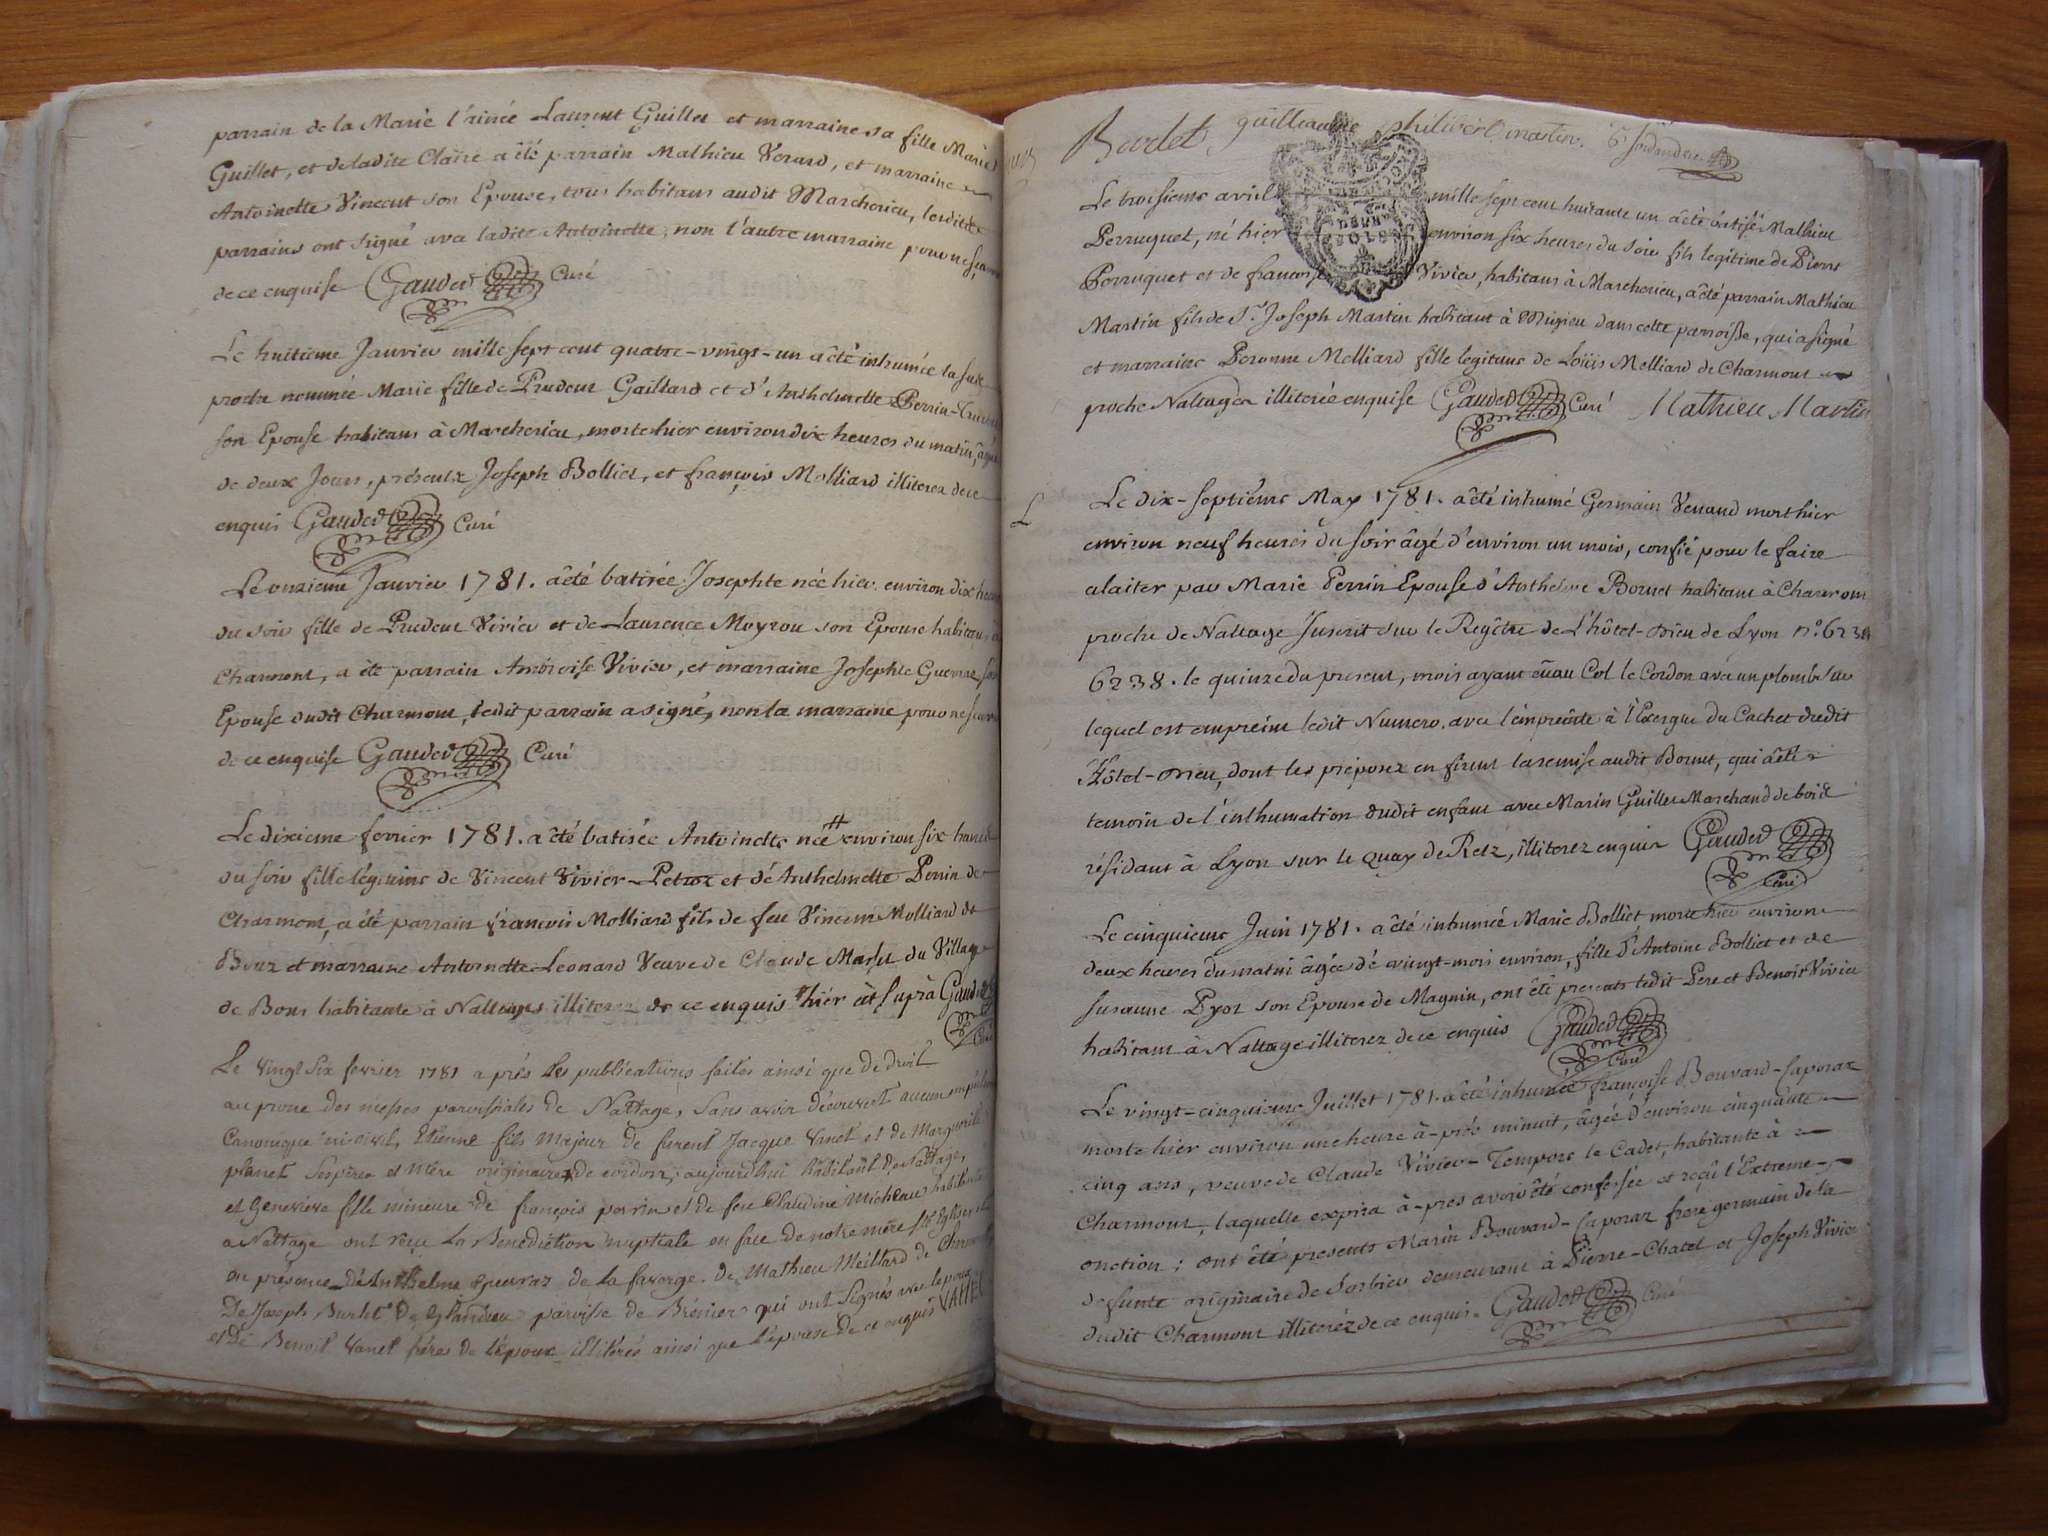 parrain de la Marie l'ainée Laurent Guillet et marraine sa fille Marie
Guillet, et de ladite Claire a été parrain Mathieu Verard, et marraine
Antoinette Vincent son Epouse, tous habitans audit Marcherieu, lesdits
parrains ont signé avec ladite Antoinette, non l'autre marraine pour ne
de ce enquise Gaudet Curé
Le huitieme Janvier mille sept cent quatre-vingt-un a été inhumée la sus
proche nommée Marie fille de Prudent Gaillard et d'Anthelmette Perrin
son Epouse habitans à Marcherieu, morte hier environ dix heures du matin, âgée
de deux Jours, présents Joseph Bolliet, et françois Molliard illiterez de ce
enquis Gaudet Curé
Le onzieme Janvier 1781. a été batisée Josephte née hier environ dix heures
du soir fille de Prudent Vivier et de Laurence Moyrou son Epouse habitans à
Charmont, a été parrain Ambroise Vivier, et marraine Josephte Guerraz son
Epouse dudit Charmont, ledit parrain a signé, non la marraine pour ne
de ce enquise Gaudet Curé
Le dixieme fevrier 1781. a été batisée Antoinette née # environ six heures
du soir fille légitime de Vincent Vivier-Petroz et d'Anthelmette Perrin de
Charmont, a été parrain françois Molliard fils de feu Vincent Molliard de
et marraine Antoinette Leonard Veuve de Claude Marlet du Village
de Bons habitante à Nattages illiterez de ce enquis # hier ut suprà Gaudet
Curé
Le vingt six fevrier 1781 après les publications faites ainsi que de droit
au prone des messes paroissiales de Nattage, sans avoir découvert aucun
Canonique ni civil, Etienne fils majeur de furent Jacque Vanet et de Marguerite
planet ses père et mère originaires de cordon, aujourd'hui habitant de Nattage,
et Genevieve fille mineure de françois perrin et de feu Claudine Micheau habitante
a Nattage ont reçu La Benediction nuptiale en face de notre mère Ste Eglise
en présence d'Anthelme Guerraz de la faverge. de Mathieu Meillard de
De Joseph Burlet De Glandieu paroisse de Brénier qui ont signés avec l'epoux
et De Benoit Vanet frères de l'epoux illiterés ainsi que l'epouse de ce enquis VANET
Burlet guilleaume philibert martin
Le troisieme avril mille sept cent huitante un a été batisé Mathieu
Perruquet, né hier environ six heures du soir fils legitime de Pierre
Perruquet et de francoise Vivier, habitans à Marcherieu, a été parrain Mathieu
Martin fils de Sr. Joseph Martin habitant à Migieu dans cette parroisse, qui a signé
et marraine Peronne Melliard fille legitime de Loüis Melliard de Charmont
proche Nattages illiterée enquise Gaudet Curé Mathieu Martin
Le dix-septiéme May 1781. a été inhumé Germain Venand mort hier
environ neuf heures du soir âgé d'environ un mois, confié pour le faire
alaiter par Marie Perrin Epouse d'Anthelme Bornet habitant à Charmont
proche de Nattage Inscrit sur le Regître de L'hôtel-Dieu de Lyon n° 6238
6238. le quinze du present, mois ayant eu au Col le Cordon avec un plomb sur
lequel est empreint ledit Numero. avec l'empreinte à l'Exergue du Cachet dudit
Hôtel-Dieu, dont les préposez en firent la remise audit Bornet, qui a été
temoin de l'inhumation dudit enfant avec Marin Guillet Marchand de bois
résidant à Lyon sur le Quay de Retz, illiterez enquis Gaudet
Curé
Le cinquieme Juin 1781. a été inhumée Marie Bolliet morte hier environ
deux heures du matin âgée de vingt-mois environ, fille d'Antoine Bolliet et de
Susanne Pyot son Epouse de Magnin, ont été presents ledit Pere et Benoit Vivier
habitant à Nattage illiterez de ce enquis Gaudet
Curé
Le vingt-cinquieme Juillet 1781. a été inhumée françoise Bouvard-Caporaz
morte hier environ une heure à-près minuit, âgée d'environ cinquante
cinq ans, veuve de Claude Vivier-Tempore le Cadet, habitante à
Charmont, laquelle expira à-près avoir été confessée et reçû l'Extreme
onction; ont été presents Marin Bouvard-Caporaz frere germain de la
defunte originaire de Sorbieu demeurant à Pierre-Chatel et Joseph Vivier
dudit Charmont illiterez de ce enquis. Gaudet Curé